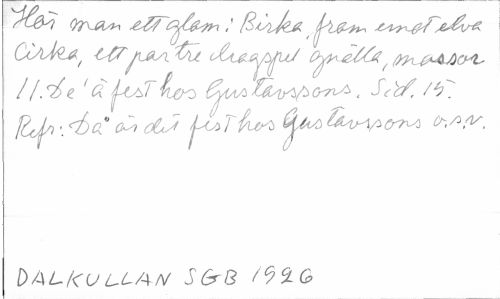 Hör man ett glam i Birka, fram emot elva
cirka, ett par tre dragspel gnälla, massor
11. De' ä fest hos Gustavssons. Sid. 15.
Refr: Då är det fest hos Gustavssons o.s.v.
DALKULLAN SGB 1926